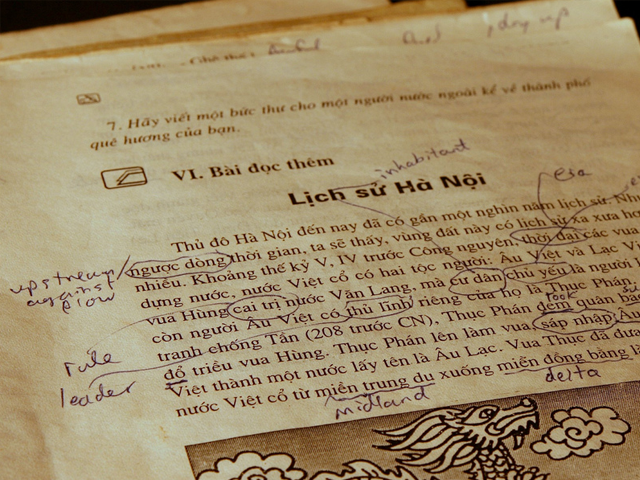 , dry up
7. Hãy viết một bức thư cho một người nước ngoài kể về thành phố
quê hương của bạn.
VI. Bài đọc thêm
inhabitant
Lịch sử Hà Nội
era
Thủ đô Hà Nội đến nay đã có gần một nghìn năm lịch sử.
ngược dòng thời gian, ta sẽ thấy, vùng đất này có lịch sử xa xưa
nhiều. Khoảng thế kỷ V, IV trước Công nguyên, thời đại các vua
upstream
against
flow
dựng nước, nước Việt cổ có hai tộc người: Âu Việt và Lạc
vua Hùng cai trị nước Văn Lang, mà cư dân chủ yếu là người
còn người Âu Việt có thủ lĩnh riêng của họ là Thục Phán.
took
rule
tranh chống Tần (208 trước CN), Thục Phán đem quân
leader
đổ triều vua Hùng. Thục Phán lên làm vua, sáp nhập Âu
Việt thành một nước lấy tên là Âu Lạc. Vua Thục đã
nước Việt cổ từ miền trung du xuống miền đồng bằng
midland
delta